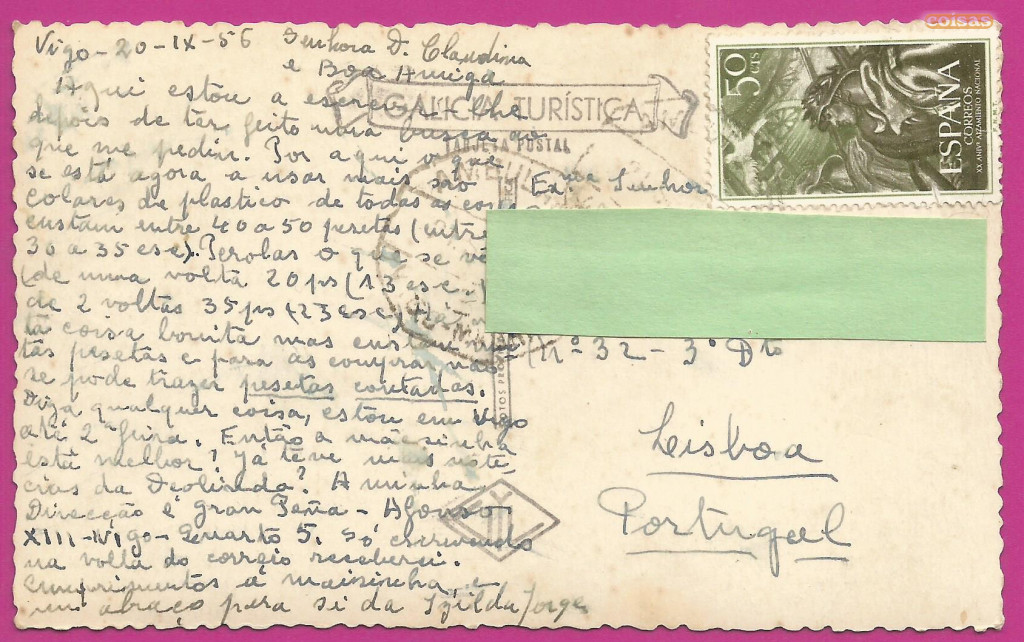 coisas
Vigo-20-IX-56 Senhora D. Claudina
e Boa Amiga
Aqui estou a escrever-lhe
depois de ter feito uma busca ao
que me pediu. Por aqui o que
se está agora a usar mais são
colares de plastico de todas as cores
custam entre 40 a 50 pesetas (entre
30 a 35 esc). Perolas o que se vê
(de uma volta 20 ps (13 esc.)
de 2 voltas 35 ps (23 esc) Há
ta coisa bonita mas custam
tas pesetas e para as comprar não
se pode trazer pesetas contadas.
Diga qualquer coisa, estou em Vigo
até 2ª feira. Então a mãesinha
está melhor? Já teve mais noti-
cias da Deolinda? A minha
Direcção é Gran Peña - Afonso
XIII-Vigo-Quarto 5. Só escrevendo
na volta do correio receberei.
Cumprimentos á mãisinha, e
um abraço para si da Izilda Jorge
GALICIA TURÍSTICA
TARJETA POSTAL
AMBUL
50 CTS
ESPAÑA
CORREOS
XX ANIVº ALZAMIENTO NACIONAL
Exmo Senhor
nº 32 - 3º Dto
Lisboa
Portugal